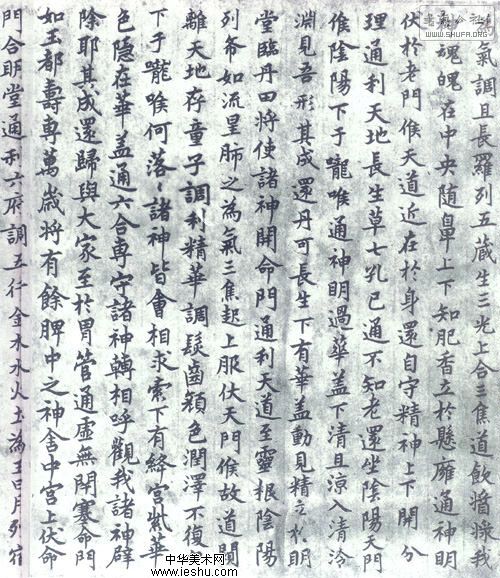 氣調且長羅列五藏生三光上合三焦道飲醬掾我
魂魄在中央随鼻上下知肥香立於懸廱通神明
伏於老門候天道近在於身還自守精神上下開分
理通利天地長生草七孔已通不知老還坐陰陽天門
候陰陽下于嚨喉通神明過華盖下清且涼入清泠
淵見吾形其成還丹可長生下有華盖動見精立於明
堂臨丹田將使諸神開命門通利天道至靈根陰陽
列布如流星肺之為氣三焦起上服伏天門候故道闚
離天地存童子調利精華調髮齒顏色潤澤不復
下于嚨喉何落〻諸神皆會相求索下有絳宮紫華
色隱在華盖通六合專守諸神轉相呼觀我諸神辟
除耶其成還歸與大家至於胃管通虛無閉塞命門
如玉都壽專萬歲將有餘脾中之神舍中宮上伏命
門合明堂通利六府調五行金木水火土為王日月列宿
WWW.SHUFA.ORG
中华美术网
www.ieshu.com